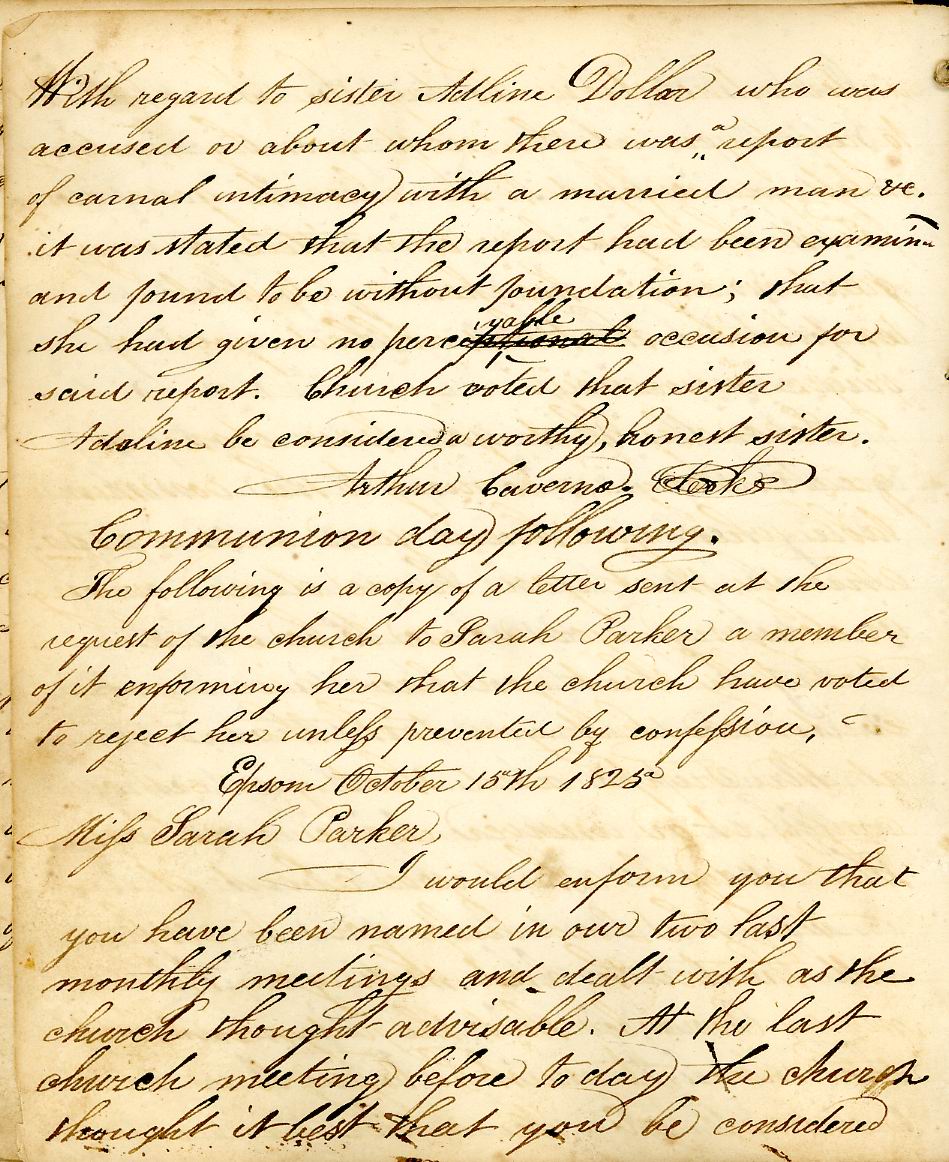 With regard to sister Adline Dollar who was
accused or about whom there was a report
of carnal intimacy with a married man &c.
it was stated that the report had been examin
and found to be without foundation; that
she had given no perceivable occasion for
said report. Church voted that sister
Adaline be considered a worthy, honest sister.
Arthur Caverno. Clerk
Communion day following.
The following is a copy of a letter sent at the
request of the church to Sarah Parker a member
of it enforming her that the church have voted
to reject her unless prevented by confession,
Epsom October 15th 1825
Miss Sarah Parker
I would enform you that
you have been named in our two last
monthly meetings and dealt with as the
church thought advisable. At the last
church meeting before today the church
thought it best that you be considered